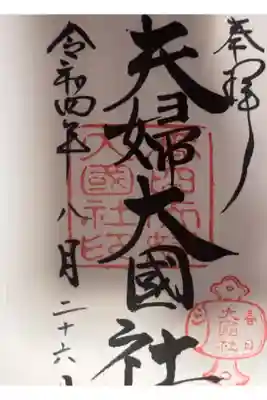 奉拝
夫婦大國社
令和四年八月二十六日
春日
大國社